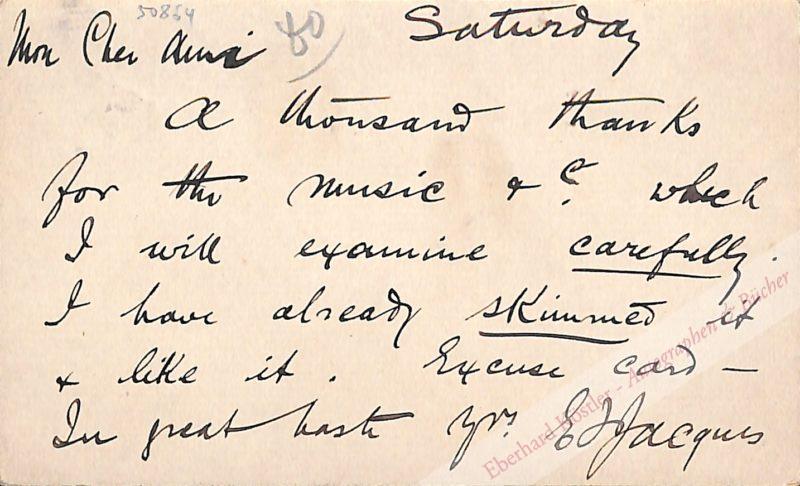 50864
80
Saturday
Mon Cher Ami
A thousand thanks
for the music & c. which
I will examine carefully.
I have already skimmed it
& like it. Excuse card —
In great haste Yrs EFJacques
Eberhard Köstler - Autographen & Bücher